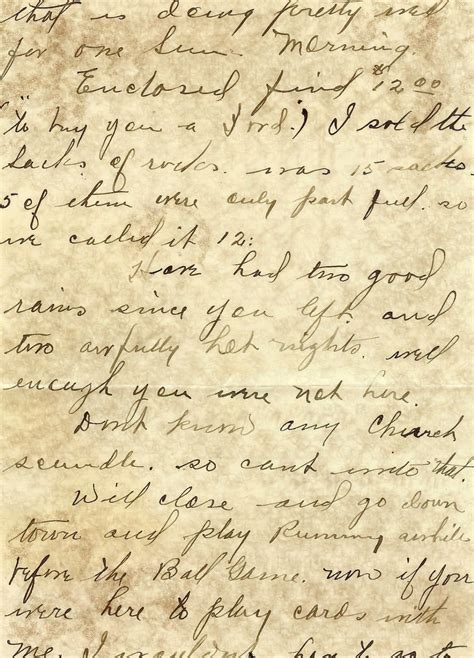 that is doing pretty well
for one Sun. Morning.
Enclosed find $12.00
"to buy you a Ford.) I sold the
sacks of rocks. was 15 sacks
5 of them were only part full. so
we called it 12:
Have had two good
rains since you left and
two awfully hot nights. well
enough you were not here.
Dont know any Church
scundle. so cant write that.
Will close and go down
town and play Rummy awhile
before the Ball Game. now if you
were here to play cards with
me. I wouldn't have to go to